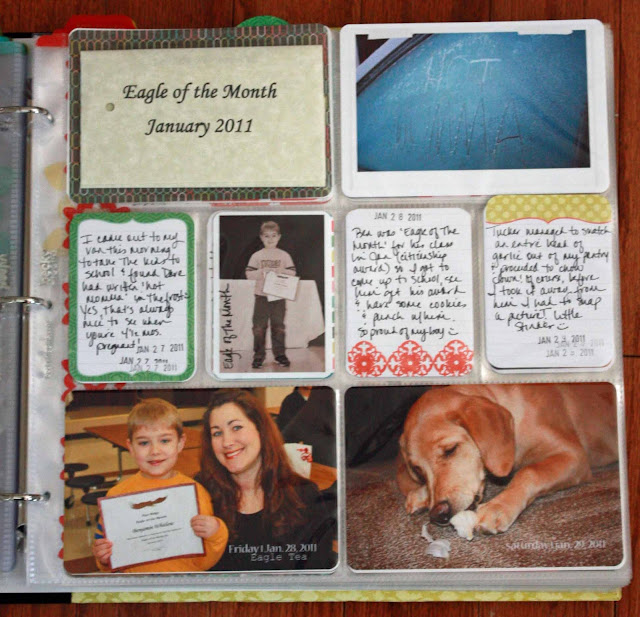 Eagle of the Month
January 2011
HOT
MAMA
I came out to my
van this morning
to take the kids to
school & found Dave
had written "hot
momma" in the frost.
Yes, that's always
nice to see when
you're 4 1/2 mos.
pregnant!
JAN 27 2011
JAN 27 2011
JAN 27 2011
Eagle Of The Month
JAN 28 2011
Ben was "Eagle of the
Month" for his class
in Jan (citizenship
award) so I got to
come up to school, see
him get his award
& have some cookies
& punch w/him.
So proud of my boy
Tucker managed to snatch
an entire head of
garlic out of my pantry
& proceeded to chow
down! Of course, before
I took it away from
him I had to snap
a picture! Little
Stinker
JAN 2 2011
JAN 2 2011
Eagle of the Month
Benjamin
Friday | Jan. 28, 2011
Eagle Tea
Saturday | Jan. 29, 2011